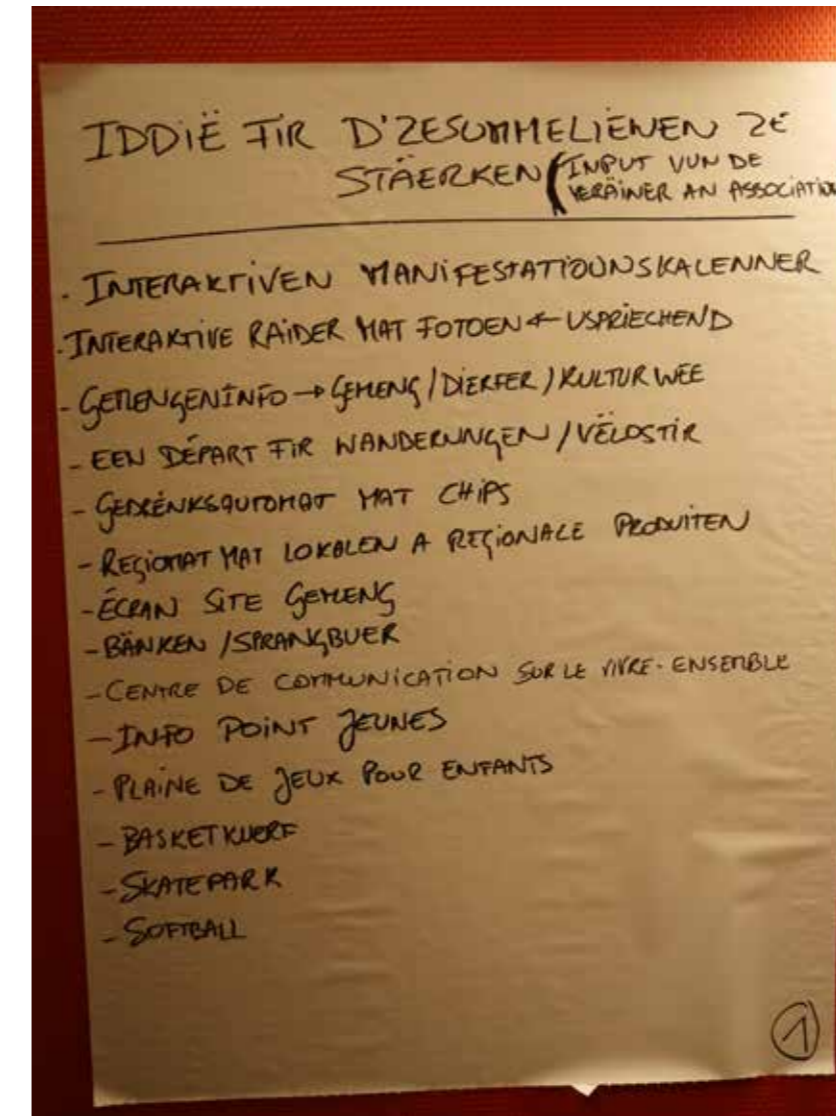 IDDIË FIR D'ZESUMMELIEWEN ZE
STÄERKEN (INPUT VUN DE
VERÄINER AN ASSOCIATION
. INTERAKTIVEN MANIFESTATIOUNSKALENNER
. INTERAKTIVE RAIDER MAT FOTOEN ← USPRIECHEND
- GEMENGENINFO → GEMENG / DIERFER / KULTUR WEE
- EEN DÉPART FIR WANDERUNGEN / VËLOSTIR
- GEDRÉNKSAUTOMAT MAT CHIPS
- REGIOMAT MAT LOKALEN A REGIONALE PRODUITEN
- ÉCRAN SITE GEMENG
- BÄNKEN / SPRANGBUER
- CENTRE DE COMMUNICATION SUR LE VIVRE-ENSEMBLE
- INFO POINT JEUNES
- PLAINE DE JEUX POUR ENFANTS
- BASKETKUERF
- SKATEPARK
- SOFTBALL
1